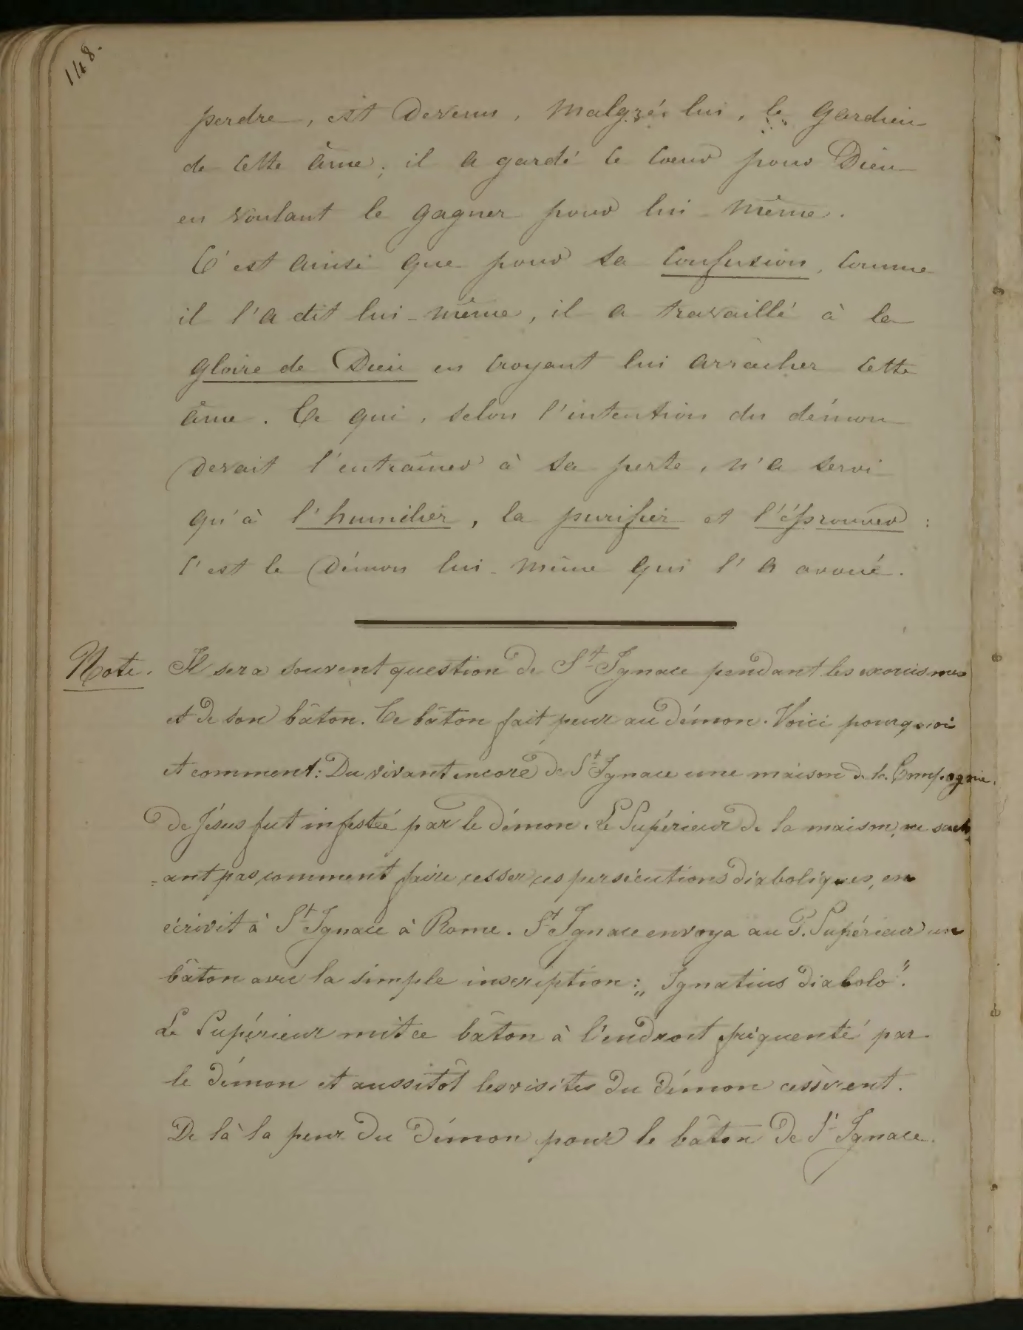 148.
perdre, est devenu, malgré lui, le gardien
de cette âme; il a gardé ce coeur pour Dieu
en voulant le gagner pour lui-même.
C'est ainsi que pour sa confusion, comme
il l'a dit lui-même, il a travaillé à la
gloire de Dieu en croyant lui arracher cette
âme. Ce qui, selon l'intention du démon
devait l'entraîner à sa perte, n'a servi
qu'à l'humilier, la purifier et l'éprouver:
c'est le démon lui-même qui l'a avoué.
Note. Il sera souvent question de St Ignace pendant les exorcismes
et de son bâton. Ce bâton fait peur au démon. Voici pourquoi
et comment: Du vivant encore de St Ignace une maison de la Compagnie
de Jésus fut infestée par le démon. Le Supérieur de la maison, ne sach
=ant pas comment faire cesser ces persécutions diaboliques, en
écrivit à St Ignace à Rome. St Ignace envoya au P. Supérieur un
bâton avec la simple inscription: „Ignatius diabolo".
Le Supérieur mit ce bâton à l'endroit fréquenté par
le démon et aussitôt les visites du démon cessèrent.
De là la peur du démon pour le bâton de St Ignace.